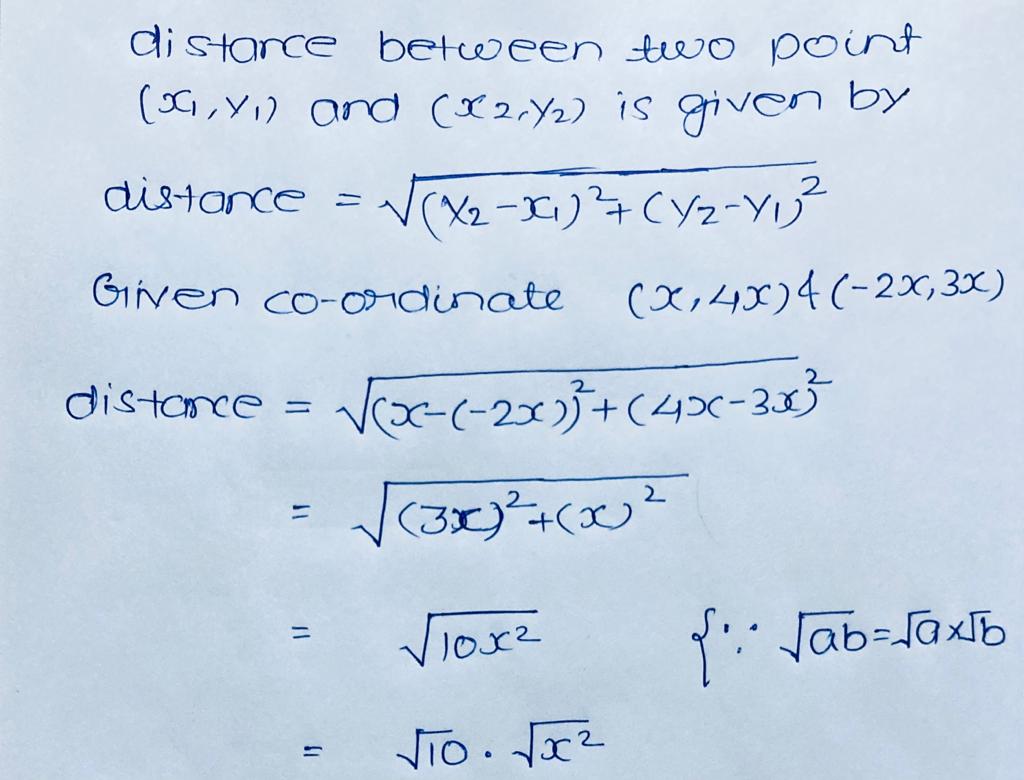 distance between two point
(x₁, y₁) and (x2, y2) is given by
distance = √(x₂-x₁)²+(y₂-y₁)²
Given co-ordinate (x, 4x) & (-2x, 3x)
distance = √(x-(-2x))²+(4x-3x)²
= √(3x)²+(x)²
= √10x² {∵ √ab=√a×√b
= √10 . √x²